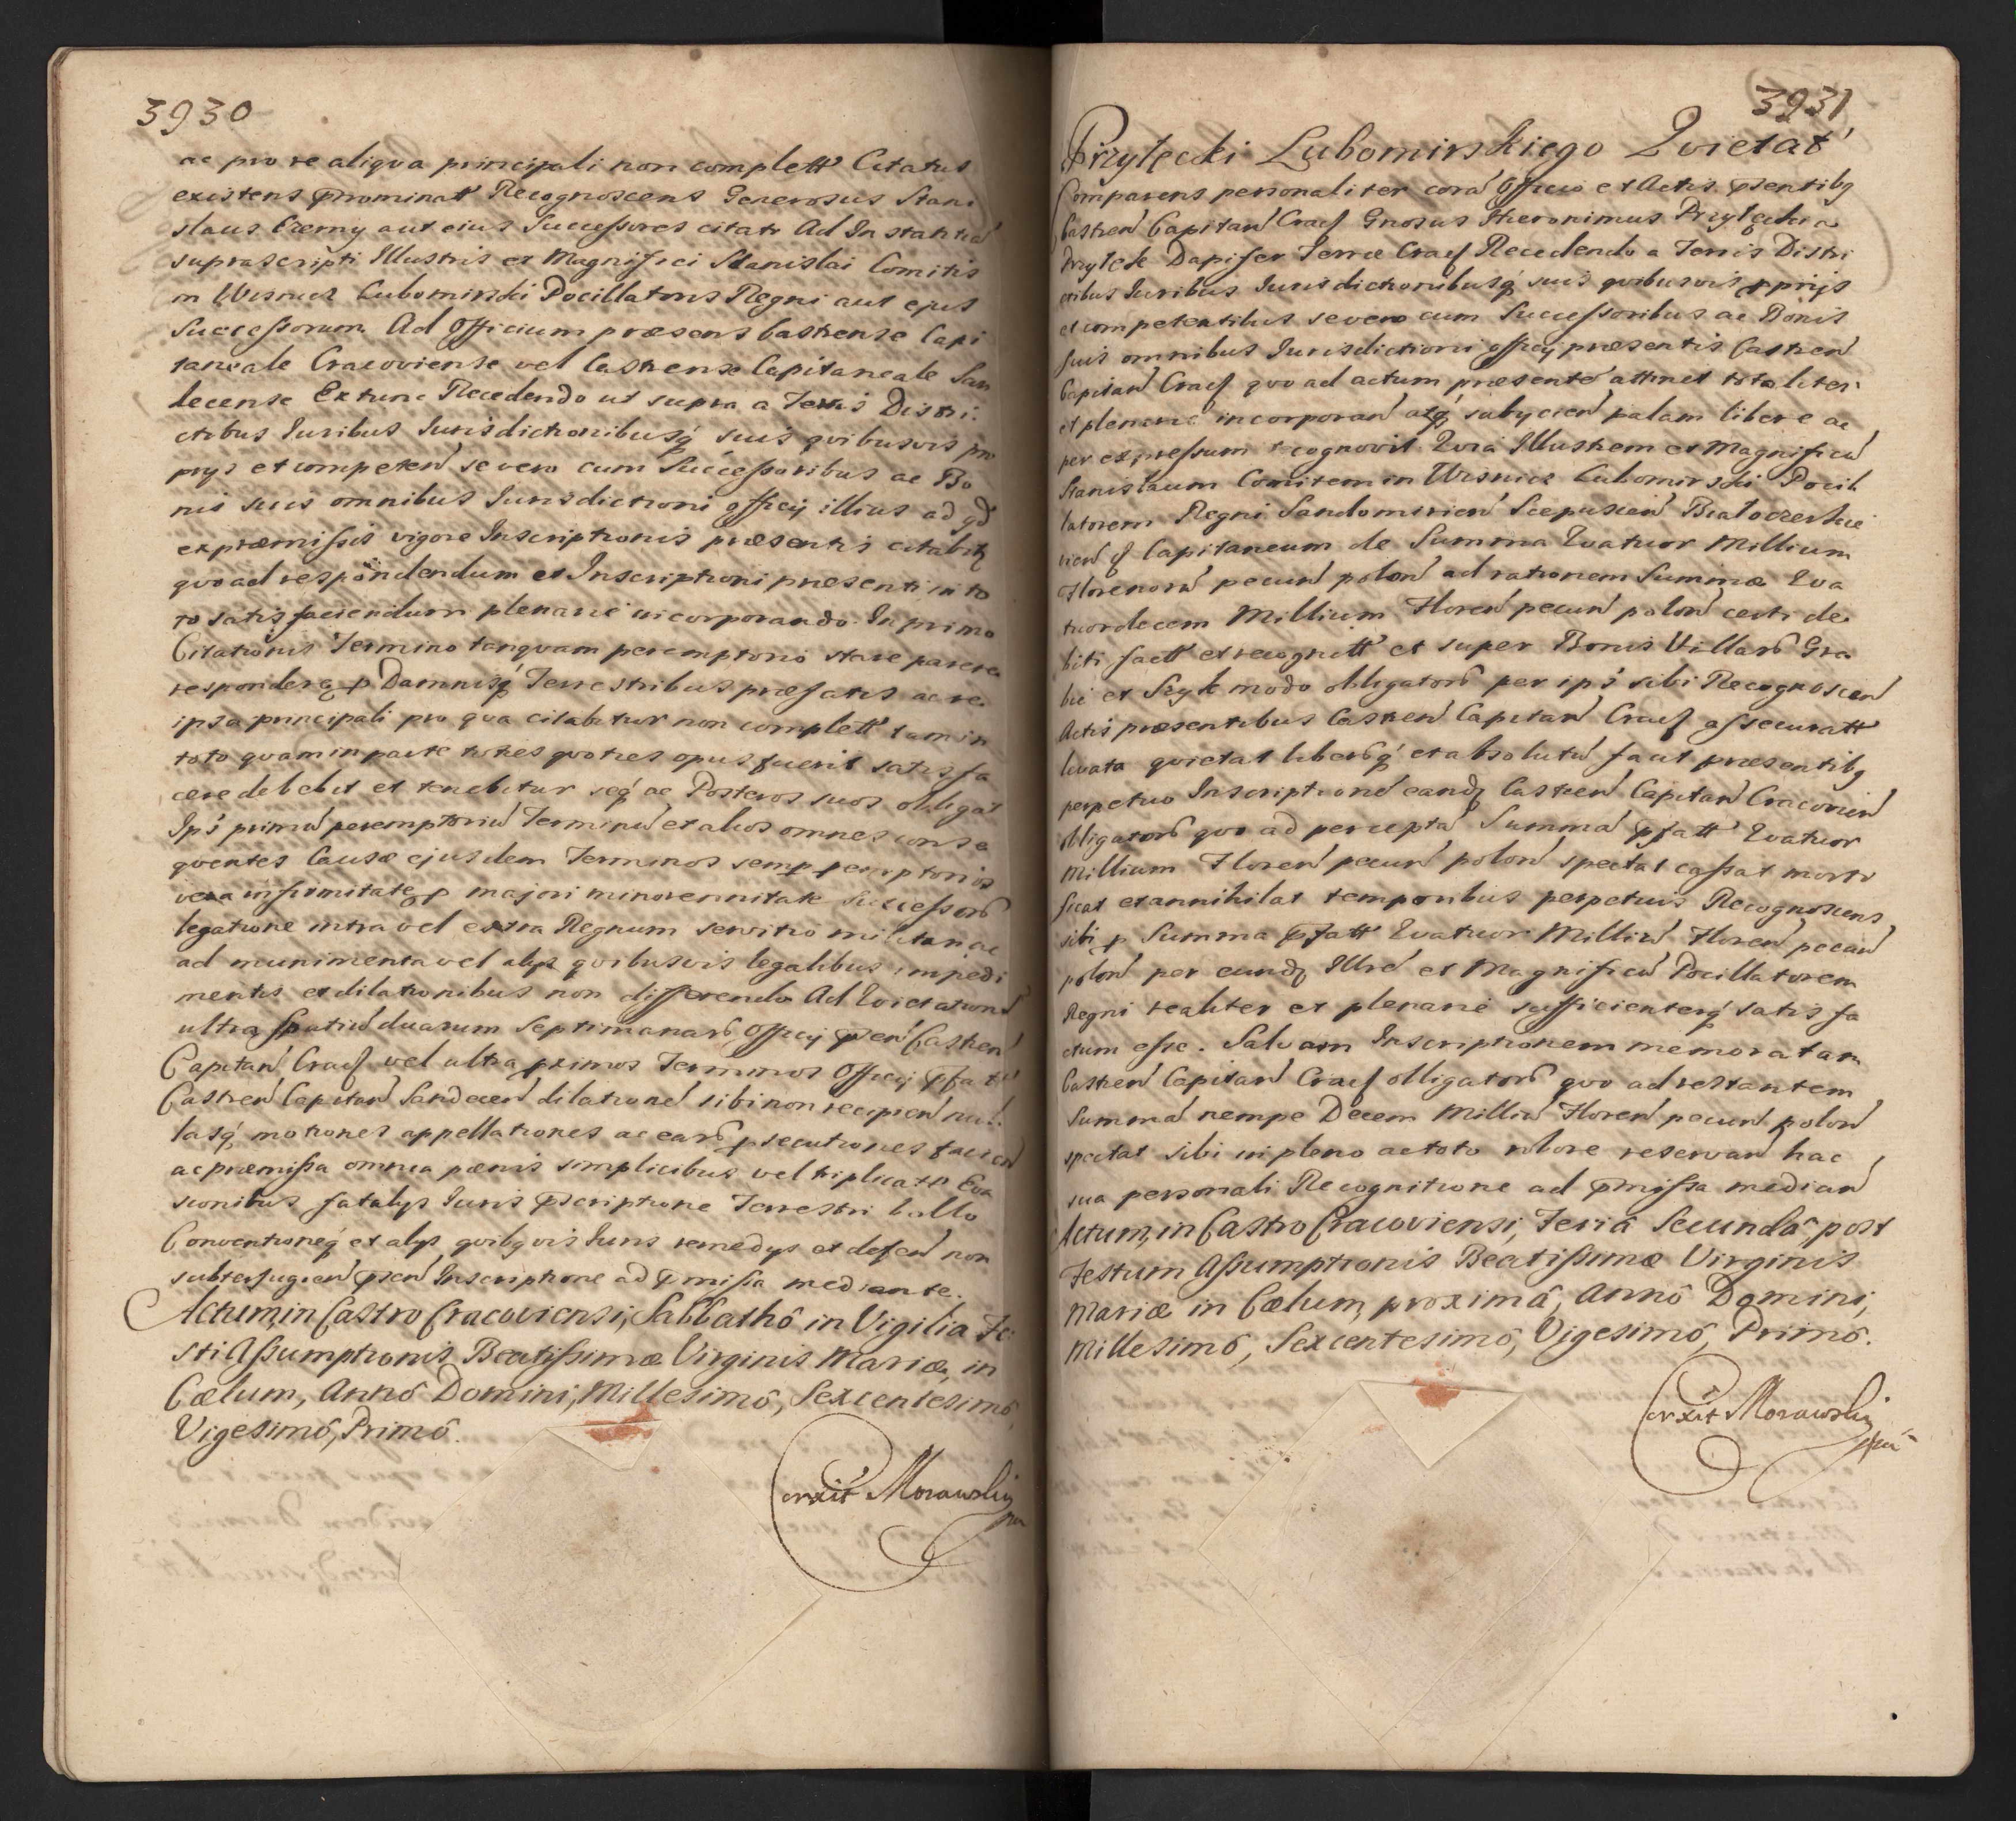 3930
ac pro re aliqva principali non complett Citatus
existens Prominatt Recognoscens Generosus Stani
slaus Czerny aut eius Successores citati Ad Instantia
suprascripti Illustris et Magnifici Stanislai Comitis
in Wisnicz Lubomirski Pocillatoris Regni aut ejus
Successorum Ad Officium præsens Castrense Capi
taneale Cracoviense vel Castrense Capitaneale San
decense Extunc Recedendo ut supra a Terris Distri
ctibus Iuribus Iurisdictionibusq suis qvibusvis pro
prys et competen se vero cum Successoribus ac Bo
nis suis omnibus Iurisdictioni officij illius ad qd
expræmissis vigore Inscriptionis præsentis citabit
qvo ad respondendum et Inscriptioni præsenti in to
to satisfaciendum plenarie incorporando. In primo
Citationis Termino tanqvam peremptorio stare parere
respondere p Damnisq Terrestribus præfatis ac re
ipsa principali pro qva citabitur non complett tam in
toto qvam in parte toties qvoties opus fuerit satisfa
cere debebit et tenebitur seq ac Posteros suos obligat
Ips primu peremptoriu Terminu et alios omnes conse
qventes Causæ ejusdem Terminos semp peremptorios
vera infirmitate p majori minorennitate Successoro
legatione intra vel extra Regnum servitio militari ac
ad munimenta vel alys qvibusvis legalibus impedi
mentis et dilationibus non differendo Ad Evictation
ultra spatiu duarum Septimanaro Officij psen Castren
Capitan Crac vel ultra primos Terminos Officij pfat
Castren Capitan Sandecen dilatione sibi non recipien nul
lasq motiones appellationes ac earo psecutiones facien
ac præmissa omnia pænis simplicibus vel triplicatt Eva
sionibus fatalys Iuris pscriptione Terrestri bello
Conventioneq et alys qvibqvis Iuris remedys et defen non
subterfugien psen Inscriptione ad pmissa mediante.
Actum in Castro Cracoviensi, Sabbathô in Vigilia Fe
sti Assumptionis Beatissimæ Virginis Mariæ, in
Cælum, Annô Domini, Millesimô, Sexcentesimô,
Vigesimô, Primô.
Corrxit Morawski
mp
3931
Przyłęcki Lubomirskiego Qvietat
Comparens personaliter cora Officio et Actis psentibq
Castren Capitan Crac Gnosus Hieronimus Przyłęcki a
Przyłęk Dapifer Terræ Crac Recedendo a Terris Distri
ctibus Iuribus Iurisdictionibusq suis qvibusvis pprijs
et competentibus se vero cum Successoribus ac Bonis
suis omnibus Iurisdictioni officij præsentis Castren
Capitan Crac qvo ad actum præsente attinet totaliter
et plenarie incorporan atq subycien palam libere ac
per expressum recognovit Qvia Illustrem et Magnificu
Stanislaum Comitem in Wisnicz Lubomirski Pocil
latorem Regni Sandomirien Scepusien Białocerkie
vien q Capitaneum de Summa Qvatuor Millium
Florenoru pecun polon ad rationem Summæ Qva
tuordecem Millium Floren pecun polon certi de
biti fact et recognitt et super Bonis Villaro Gra
bie et Szyk modo obligatorio per ips sibi Recognoscen
Actis præsentibus Castren Capitan Crac assecuratt
levata qvietat liberoq et absolutu facit præsentibq
perpetuo Inscriptione eandq Castren Capitan Cracovien
obligatoro qvo ad percepta Summa pfatt Qvatuor
Millium Floren pecun polon spectat cassat morti
ficat et annihilat temporibus perpetuis Recognoscens
sibi p Summa pfatt Qvatuor Milliu Floren pecun
polon per eundq Illre et Magnificu Pocillatorem
Regni realiter et plenarie sufficienterq satisfa
ctum esse. Salvam Inscriptionem memoratam
Castren Capitan Crac obligatoro qvo ad restantem
Summa nempe Decem Milliu Floren pecun polon
spectat sibi in pleno ac toto robore reservan hac
sua personali Recognitione ad pmissa median
Actum, in Castro Cracoviensi, Feriâ Secundâ post
Festum Assumptionis Beatissimæ Virginis
Mariæ in Cælum, proximâ, Annô Domini,
Millesimô, Sexcentesimô, Vigesimô, Primô.
Corrxit Morawski
mp